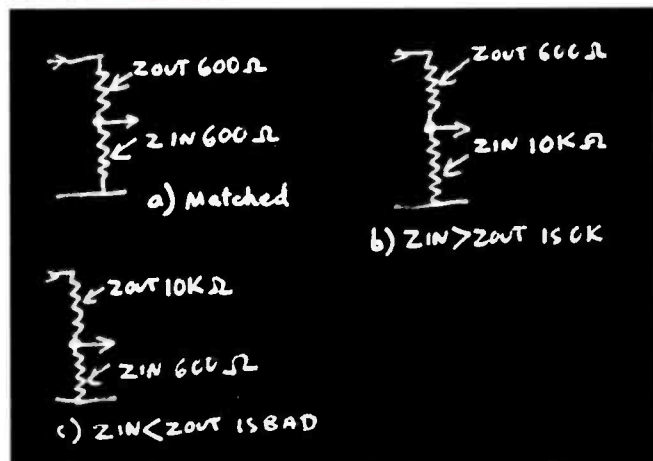 ZOUT 600Ω
ZIN 600Ω
a) Matched
ZOUT 600Ω
ZIN 10KΩ
b) ZIN>ZOUT IS OK
ZOUT 10KΩ
ZIN 600Ω
c) ZIN<ZOUT IS BAD